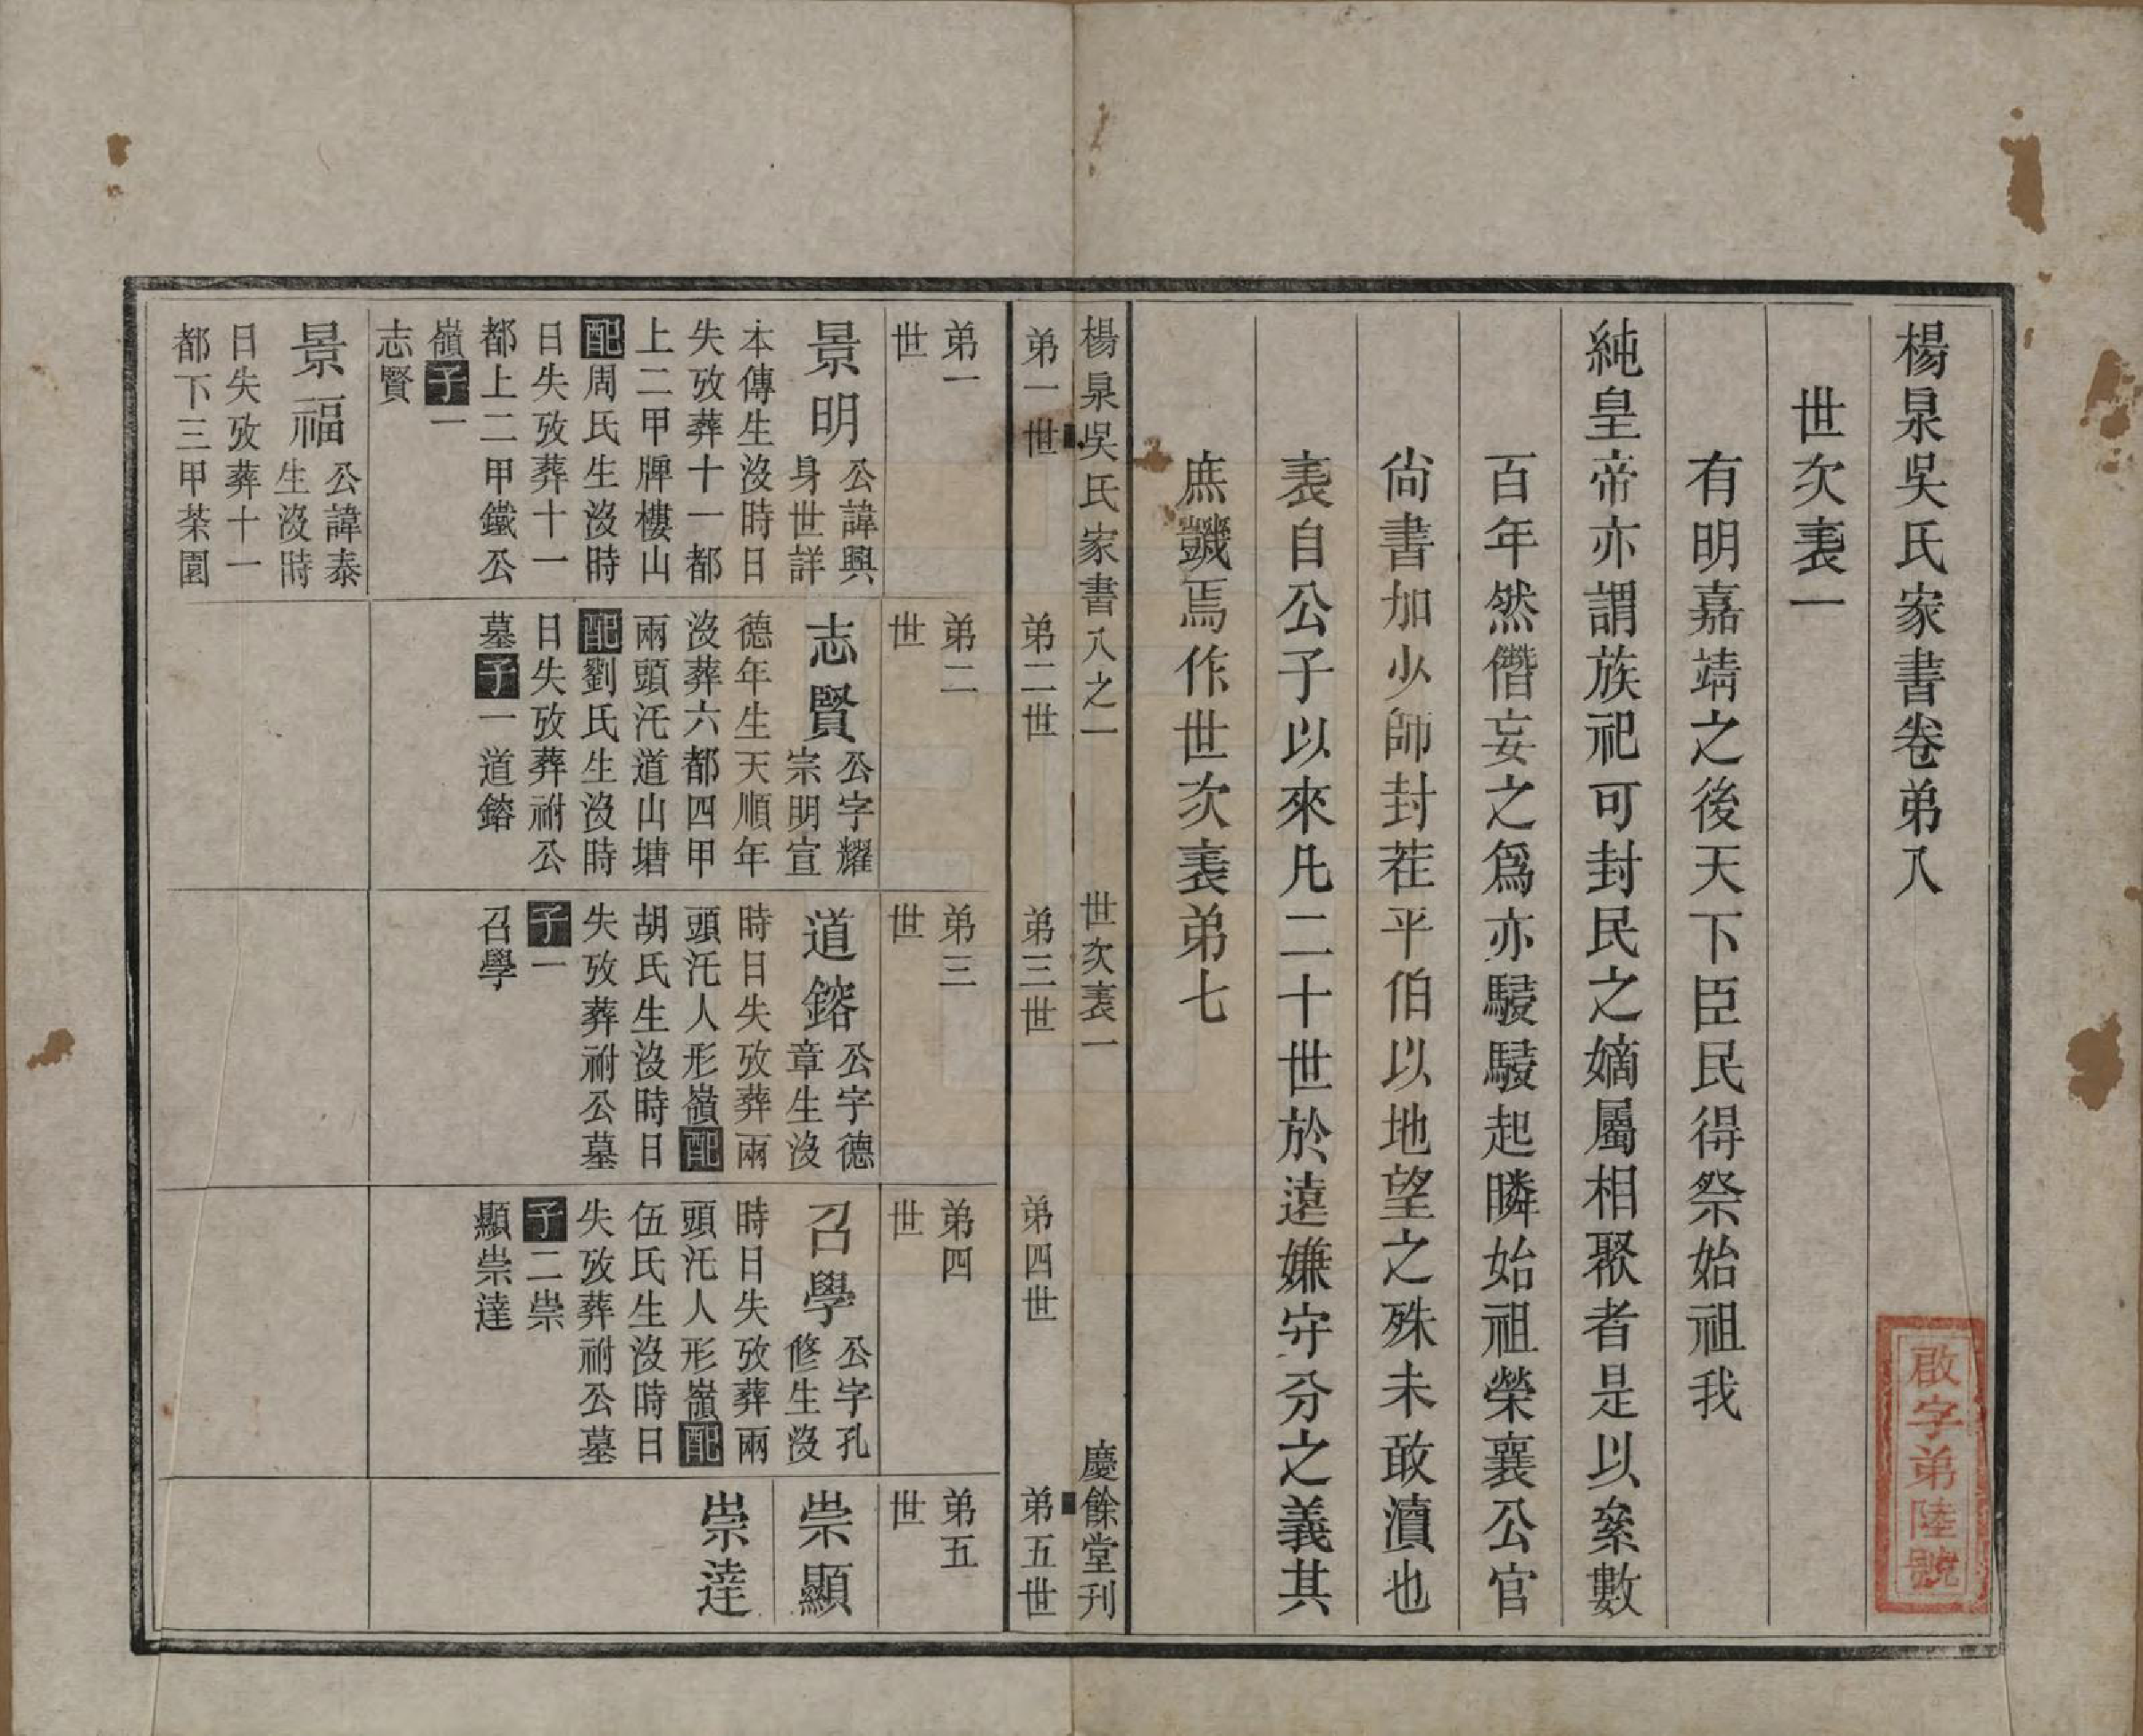 楊泉吳氏家書卷弟八
世次表一
有明嘉靖之後天下臣民得祭始祖我
純皇帝亦謂族祀可封民之嫡屬相聚者是以絫數
百年然僭妄之爲亦駸駸起瞵始祖榮襄公官
尙書加少師封茌平伯以地望之殊未敢瀆也
表自公子以來凡二十世於遠嫌守分之義其
庶譏焉作世次表弟七
啟字弟陸號
楊泉吳氏家書八之一 世次表一 慶餘堂刊
弟一世 弟二世 弟三世 弟四世 弟五世
弟一
世
景明
公諱興
身世詳
本傳生沒時日
失攷葬十一都
上二甲牌樓山
配周氏生沒時
日失攷葬十一
都上二甲鐵公
嶺子一
志賢
景福
公諱泰
生沒時
日失攷葬十一
都下三甲茶園
弟二
世
志賢
公字耀
宗明宣
德年生天順年
沒葬六都四甲
兩頭汑道山塘
配劉氏生沒時
日失攷葬祔公
墓子一道鎔
弟三
世
道鎔
公字德
章生沒
時日失攷葬兩
頭汑人形嶺配
胡氏生沒時日
失攷葬祔公墓
子一
召學
弟四
世
召學
公字孔
修生沒
時日失攷葬兩
頭汑人形嶺配
伍氏生沒時日
失攷葬祔公墓
子二崇
顯崇達
弟五
世
崇顯
崇達